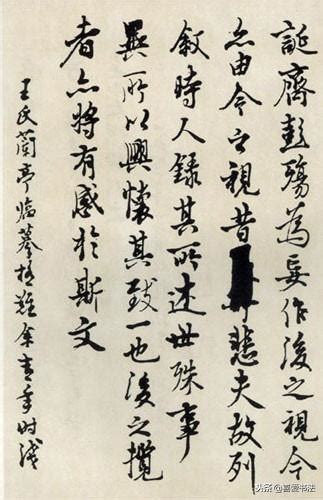 誕齊彭殤為妄作後之視今
亦由今之視昔悲夫故列
敘時人錄其所述世殊事
異所以興懷其致一也後之攬
者亦將有感於斯文
王氏蘭亭臨摹極難余青年時
头条@喜爱书法